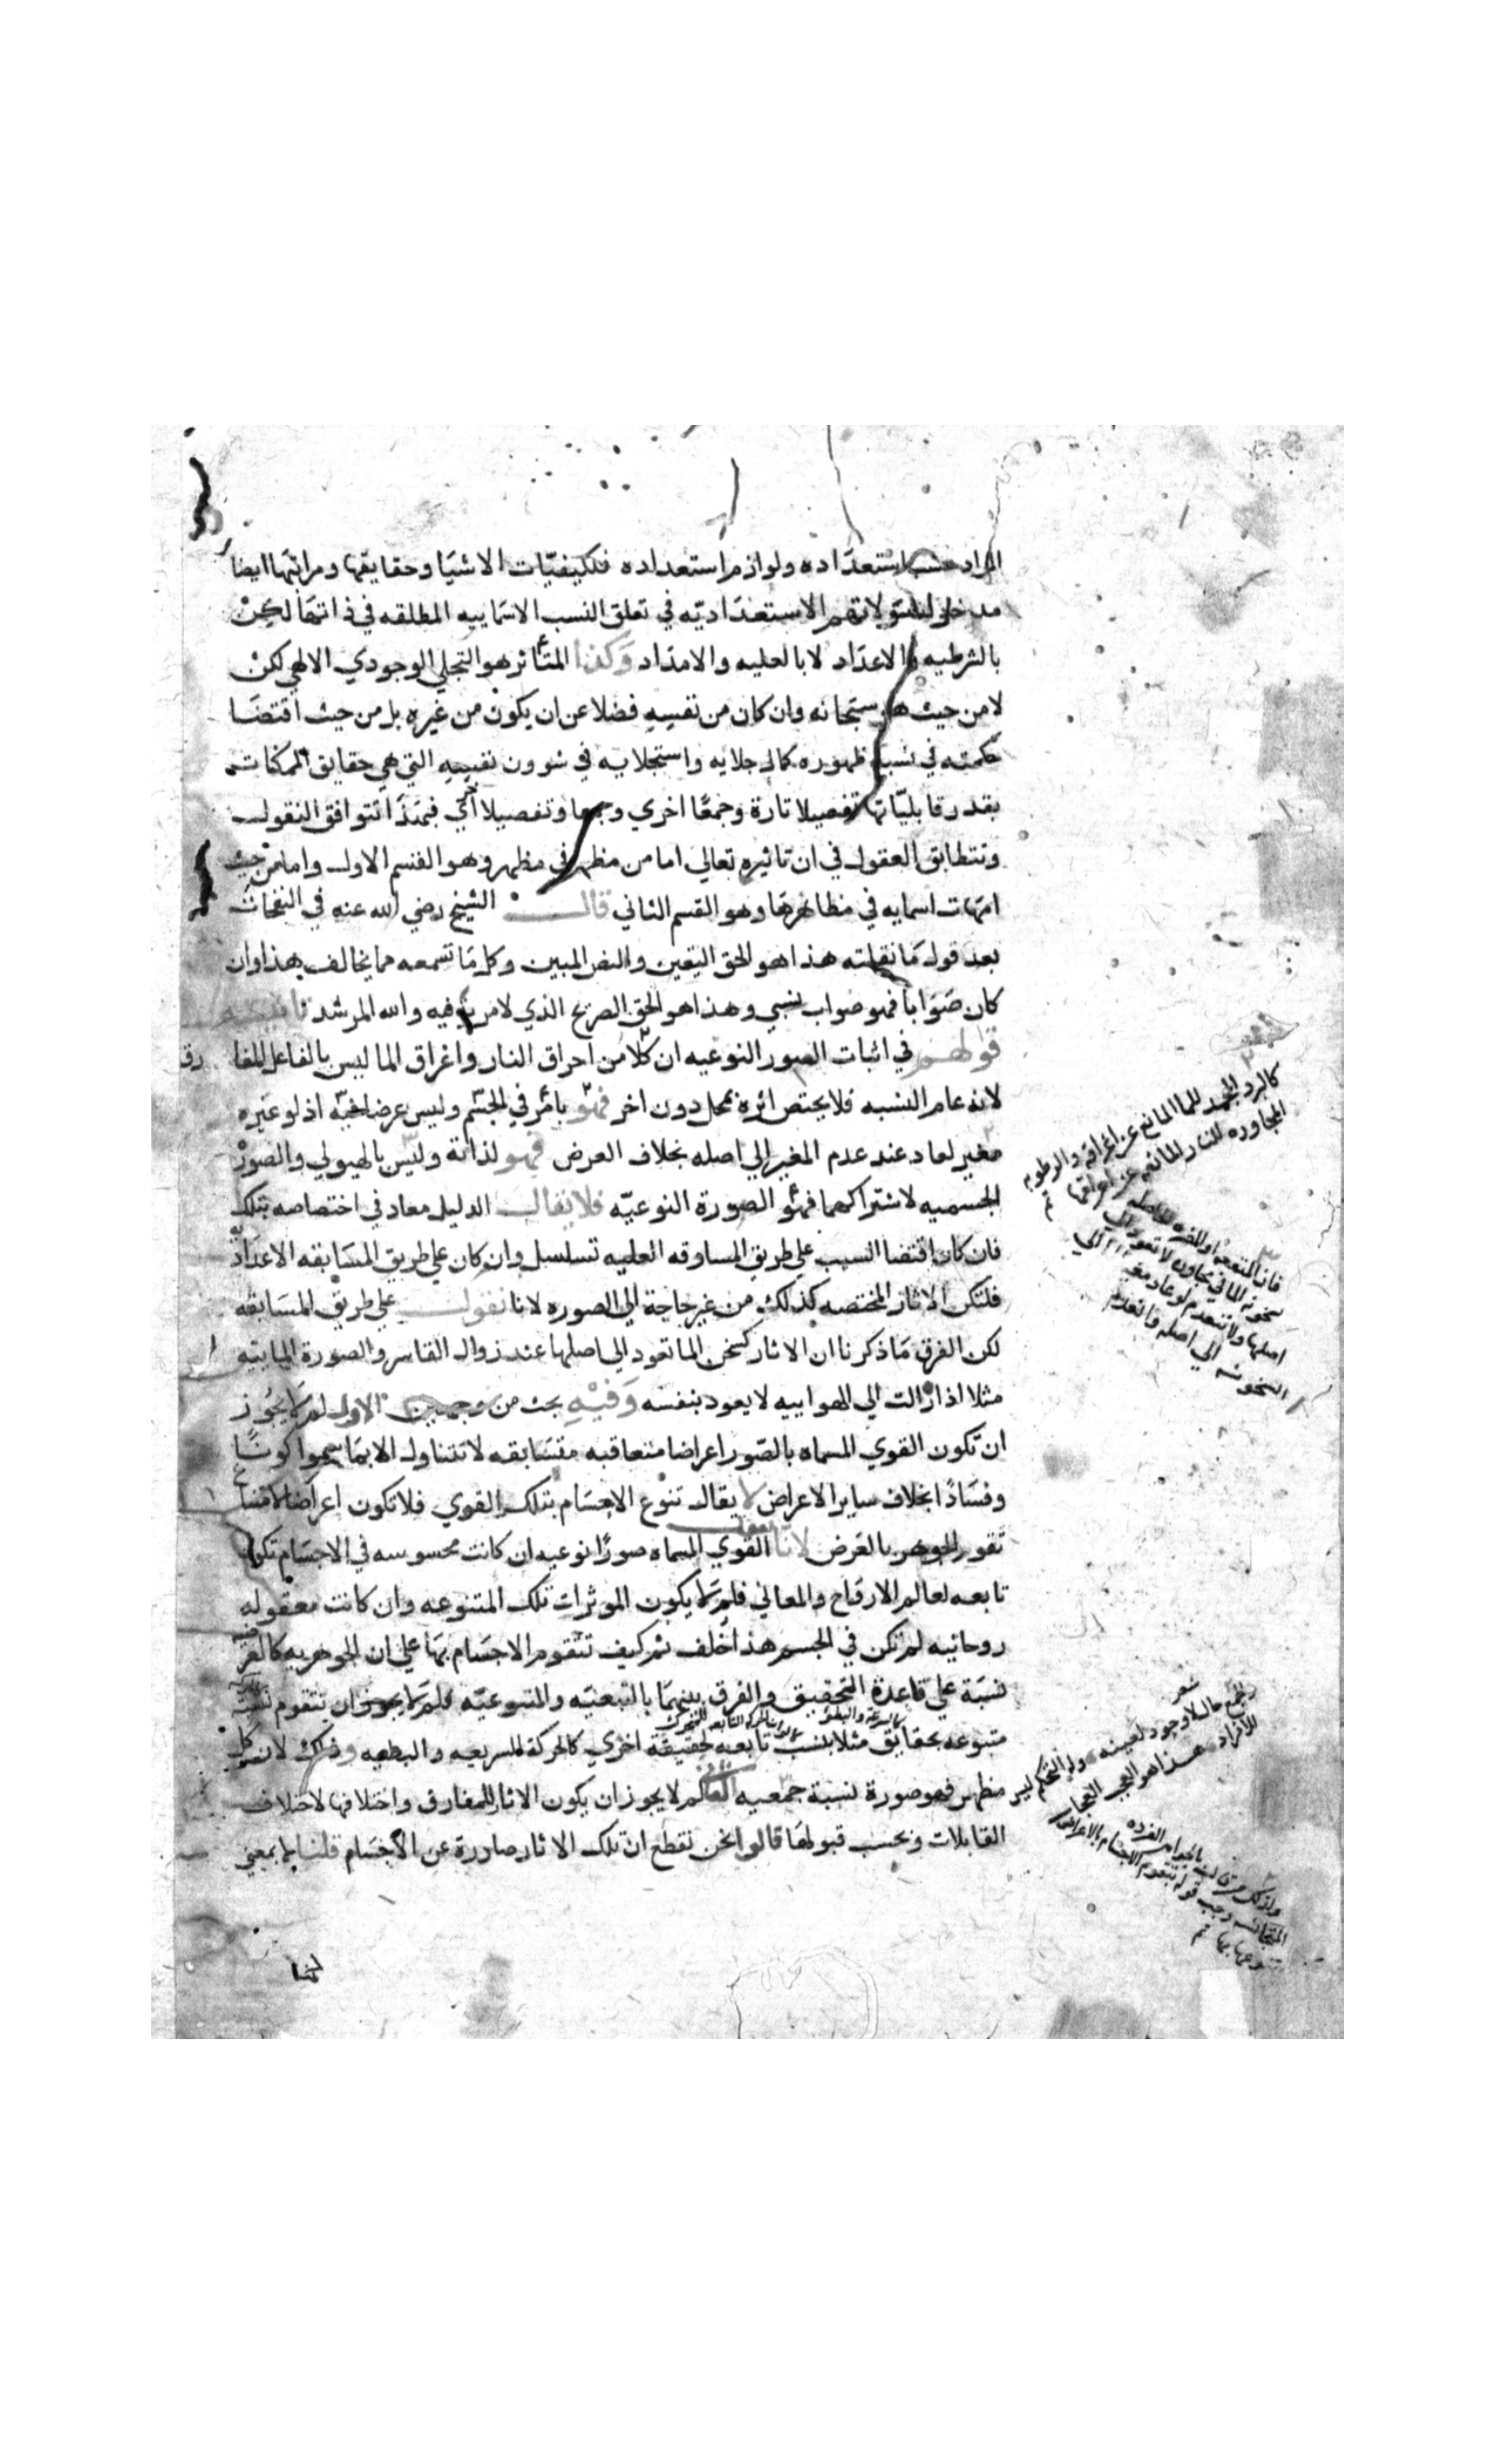 المراد حسب استعداده ولوازم استعداده فلكيفيّات الاشيا وحقايقها ومراتبها ايضا
مدخل الاستعداديّه في تعلق النسب الاسماييه المطلقه في ذاتها لكن
بالشرطيه والاعداد لا بالعليه والامداد وكذا المتأثر هو التجلي الوجودي الالهي لكن
لا من حيث هو سبحانه وان كان من نفسه فضلا عن ان يكون من غيره بل من حيث اقتضا
حكمته في نسبة ظهوره كمال جلايه واستجلايه في شوون نفسه التي هي حقايق الممكنات
بقدر قابليّاتها تفصيلا تارة وجمعًا اخري وجمعا وتفصيلا اخري فبهذا تتوافق النقول
وتتطابق العقول في ان تاثيره تعالي اما من مظهر في مظهر وهو القسم الاول واما من حيث
امهات اسمايه في مظاهرها وهو القسم الثاني قال الشيخ رضي الله عنه في النفحات
بعد قوله ما نقلته هذا هو الحق اليقين والنص المبين وكل ما تسمعه مما يخالف هذا وان
كان صوابا فهو صواب نسبي وهذا هو الحق الصريح الذي لا مرية فيه والله المرشد
قولهم في اثبات الصور النوعيه ان كلا من احراق النار واغراق الما ليس بالفاعل المفارق
لانه عام النسبه فلا يختص اثره بمحل دون اخر فهو بامر في الجسم وليس عرضا فيه اذ لو غيره
مغير لعاد عند عدم المغير الي اصله بخلاف العرض فهو لذاته وليس بالهيولي والصور
الجسميه لاشتراكهما فهو الصورة النوعيّه فلا يقال الدليل معاد في اختصاصه بتلك
فان كان اقتضا السبب علي طريق المساوقه العليه تسلسل وان كان علي طريق المسابقه الاعداديه
فلتكن الاثار المختصه كذلك من غير حاجة الي الصوره لانا نقول علي طريق المسابقه
لكن الفرق ما ذكرنا ان الاثار كسخن الما تعود الي اصلها عند زوال القاسر والصورة المايّه
مثلا اذا زالت الي الهواييه لا يعود بنفسه وفيه بحث من وجهين الاول لم لا يجوز
ان تكون القوي المسماه بالصور اعراضا متعاقبه متسابقه لا تتناول الا بما سموا كونًا
وفسادًا بخلاف ساير الاعراض لا يقال تنوع الاجسام بتلك القوي فلا تكون اعراضا لامتناع
تقوم الجوهر بالعرض لانا نقول القوي المسماه صورًا نوعيه ان كانت محسوسه في الاجسام تكون
تابعه لعالم الارواح والمعاني فلم لا يكون الموثرات تلك المتنوعه وان كانت معقوله
روحانيه لم تكن في الجسم هذا خلف ثم كيف تتقوم الاجسام بها علي ان الجوهريه كالعرضيه
نسبة علي قاعدة التحقيق والفرق بينهما بالتبعيّه والمتبوعيّه فلم لا يجوز ان يتقوم نسبة
متبوعه بحقايق مثلا بنسب تابعه لحقيقة اخري كالحركة للسريعه والبطيه وذلك لان كل
مظهر فهو صورة نسبة جمعيه الثاني لم لا يجوز ان يكون الاثار للمفارق واختلافها لاختلاف
القابلات وبحسب قبولها قالوا نحن نقطع ان تلك الاثار صادرة عن الاجسام قلنا لا بمعني
لنا
كالبرد المجمد للما المانع عن اغراقه والرطوبه
المجاوره للنار المانعه عن احراقها
سخونة الما في
اصلها ولا تنعدم
السخونه الي اصله
شعر
والجمع حال لا وجود لعينه وله التحكم ليس
للافراد هذا هو العجب العجاب